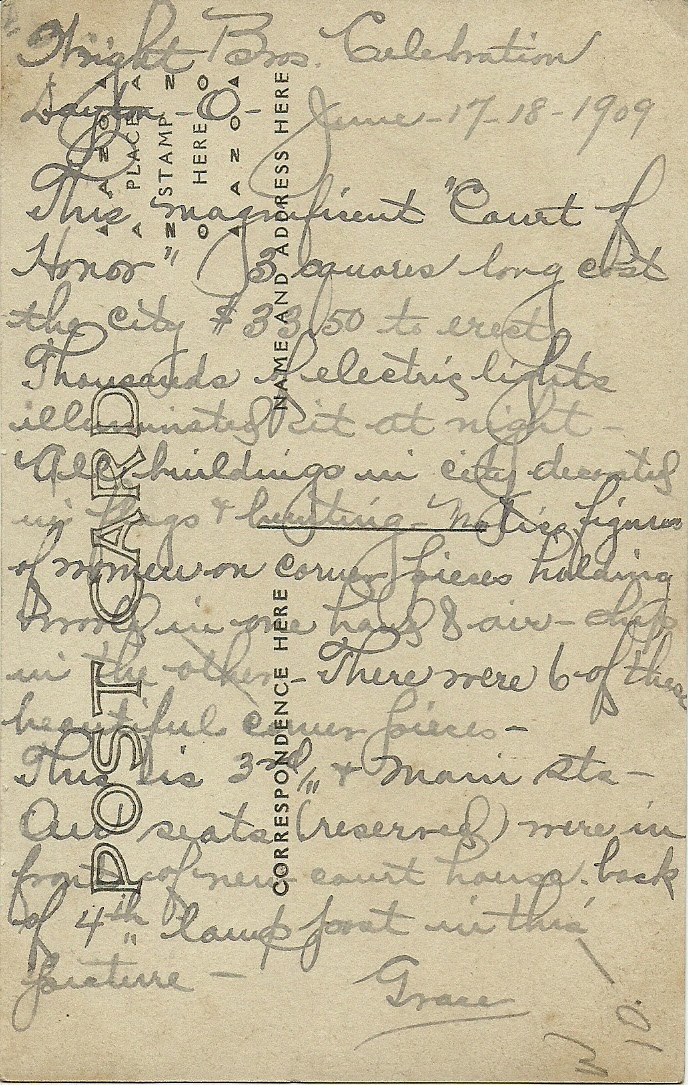 Wright Bros. Celebration
Dayton - O - June - 17 - 18 - 1909
This magnificent "Court of
Honor" 3 squares long cost
the city $3350 to erect
Thousands of electric lights
illuminated it at night -
All buildings in city decorated
in flags & bunting - Notice figures
of women on corner pieces holding
in one hand & air - ship
in the other - There were 6 of these
beautiful corner pieces -
This is 3rd, & Main sts -
Our seats (reserved) were in
front of new court house. back
of 4th lamp post in this
picture -
Grace
POST CARD
PLACE
STAMP
HERE
AZO
NAME AND ADDRESS HERE
CORRESPONDENCE HERE